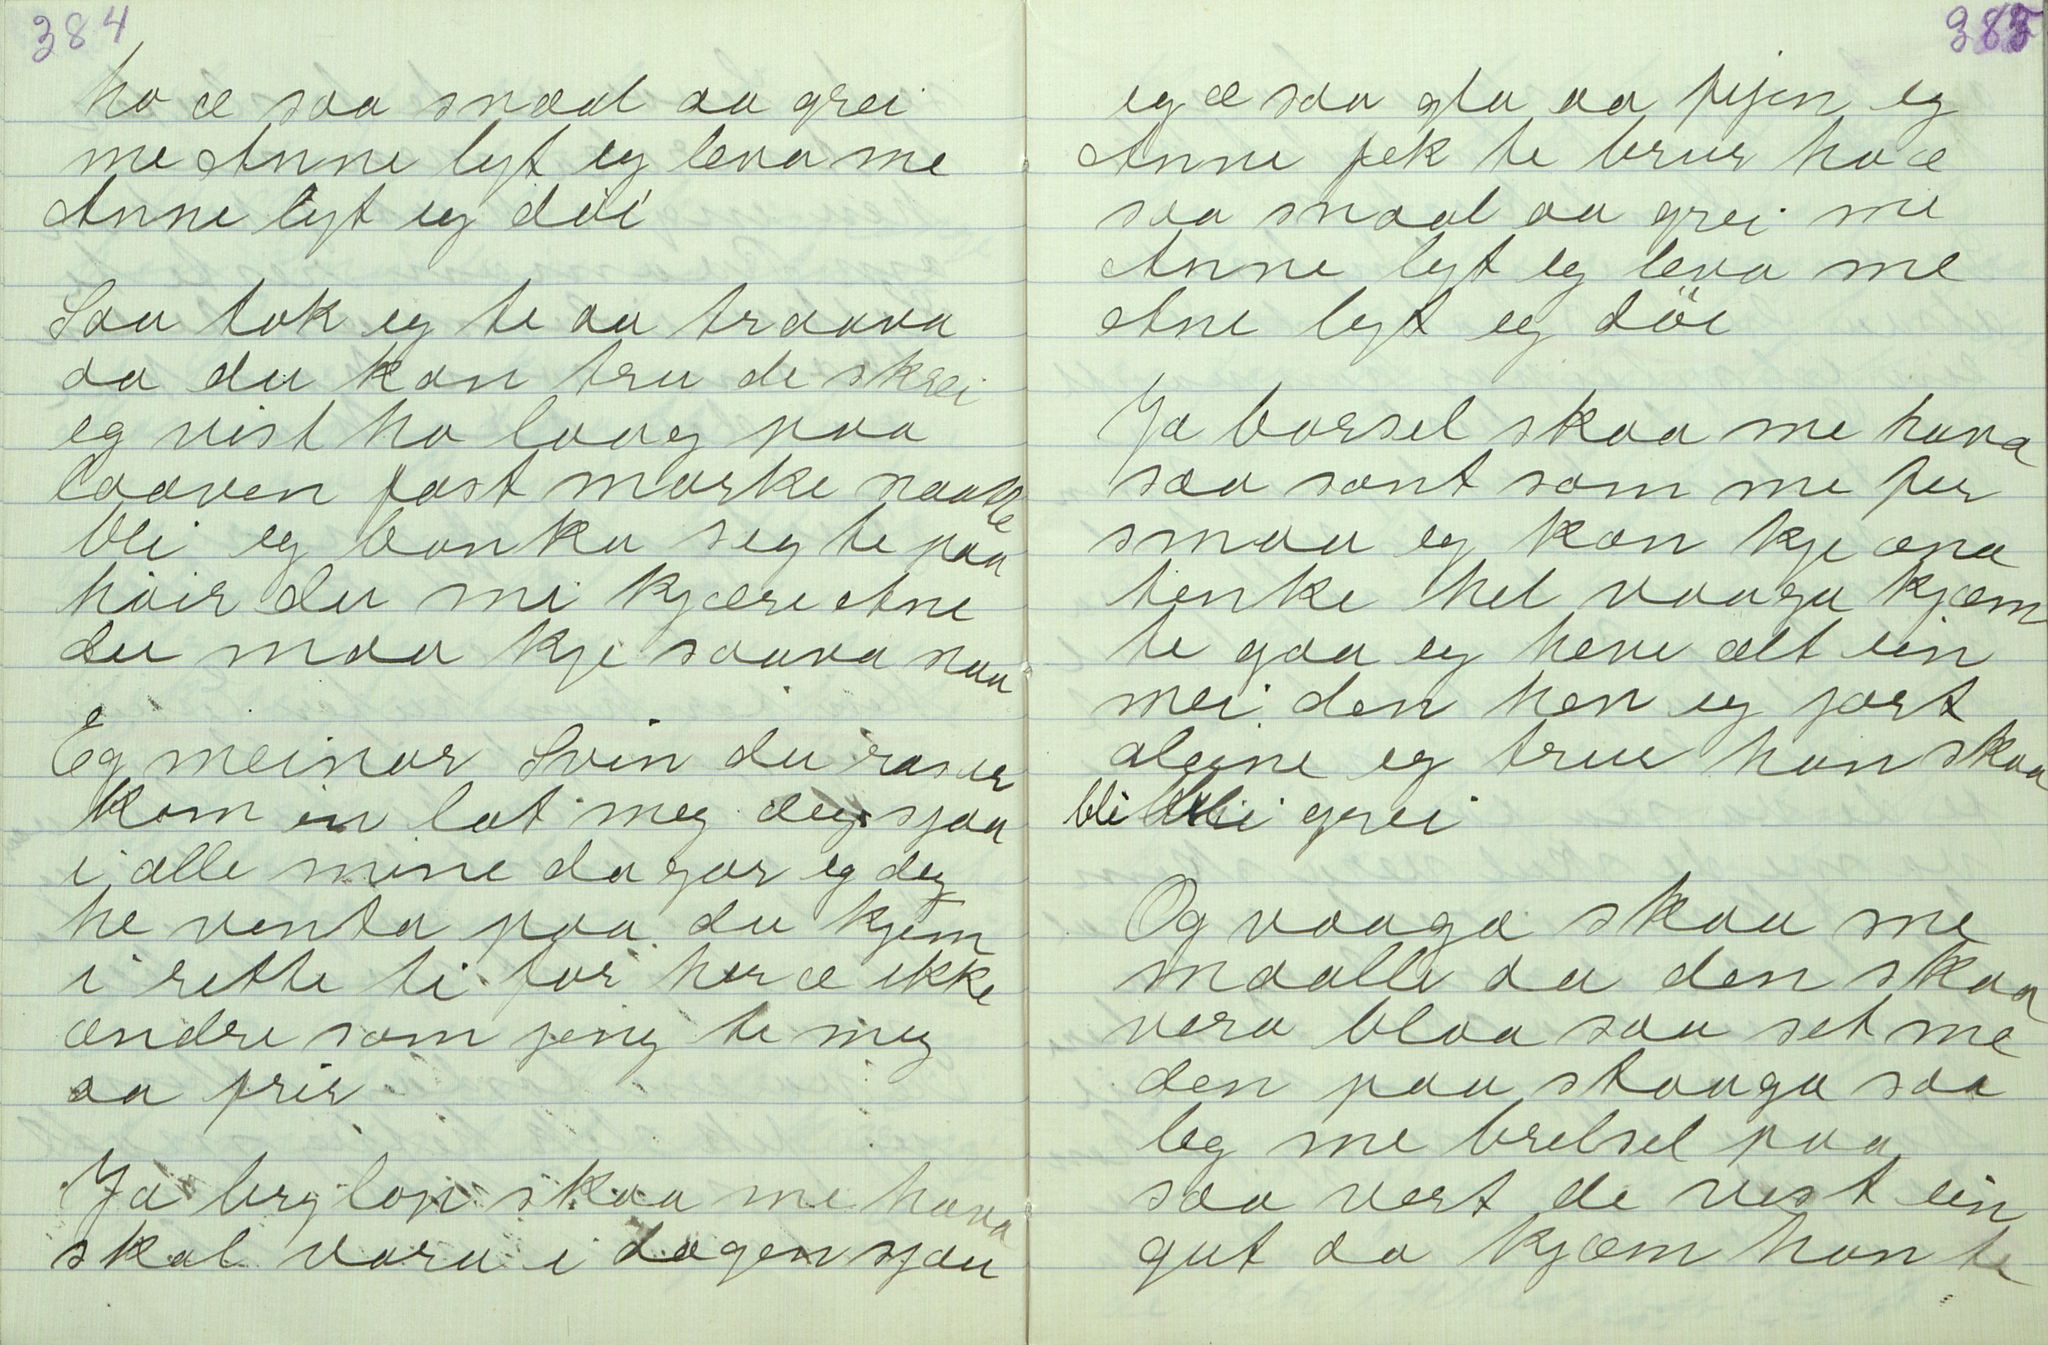 384
ho æ saa snaal aa grei
me Anne lyt eg leva me
Anne lyt eg döi
Saa tok eg te aa traava
aa du kan tru de skrei
eg vist ho laag paa
laaven fast mørke naatte
bli eg banka seg te paa
höir du mi kjære Ane
du maa kje saava naa
Eg meinar Svin du rasar
kom in lat meg deg sjaa
i alle mine dagar eg deg
he venta paa du kjem
i rette ti for her æ ikke
andre som jeng te meg
aa frir
Ja brylop skaa me hava
skal vara i dagen sjau
385
eg æ saa gla aa fejen eg
Anne fek te brur ho æ
saa snaal aa grei me
Anne lyt eg leva me
Ane lyt eg döi
Ja barsel skaa me hava
saa sant som me fer
smaa eg kan kje ana
tenke hel vaaga kjæm
te gaa eg heve alt ein
mei den hen eg jort
aleine eg true han skaa
bli grei
Og vaaga skaa me
maalle aa den skaa
vera blaa saa set me
den paa staaga saa
leg me brelsel paa
saa vert de vist ein
gut aa kjæm han te